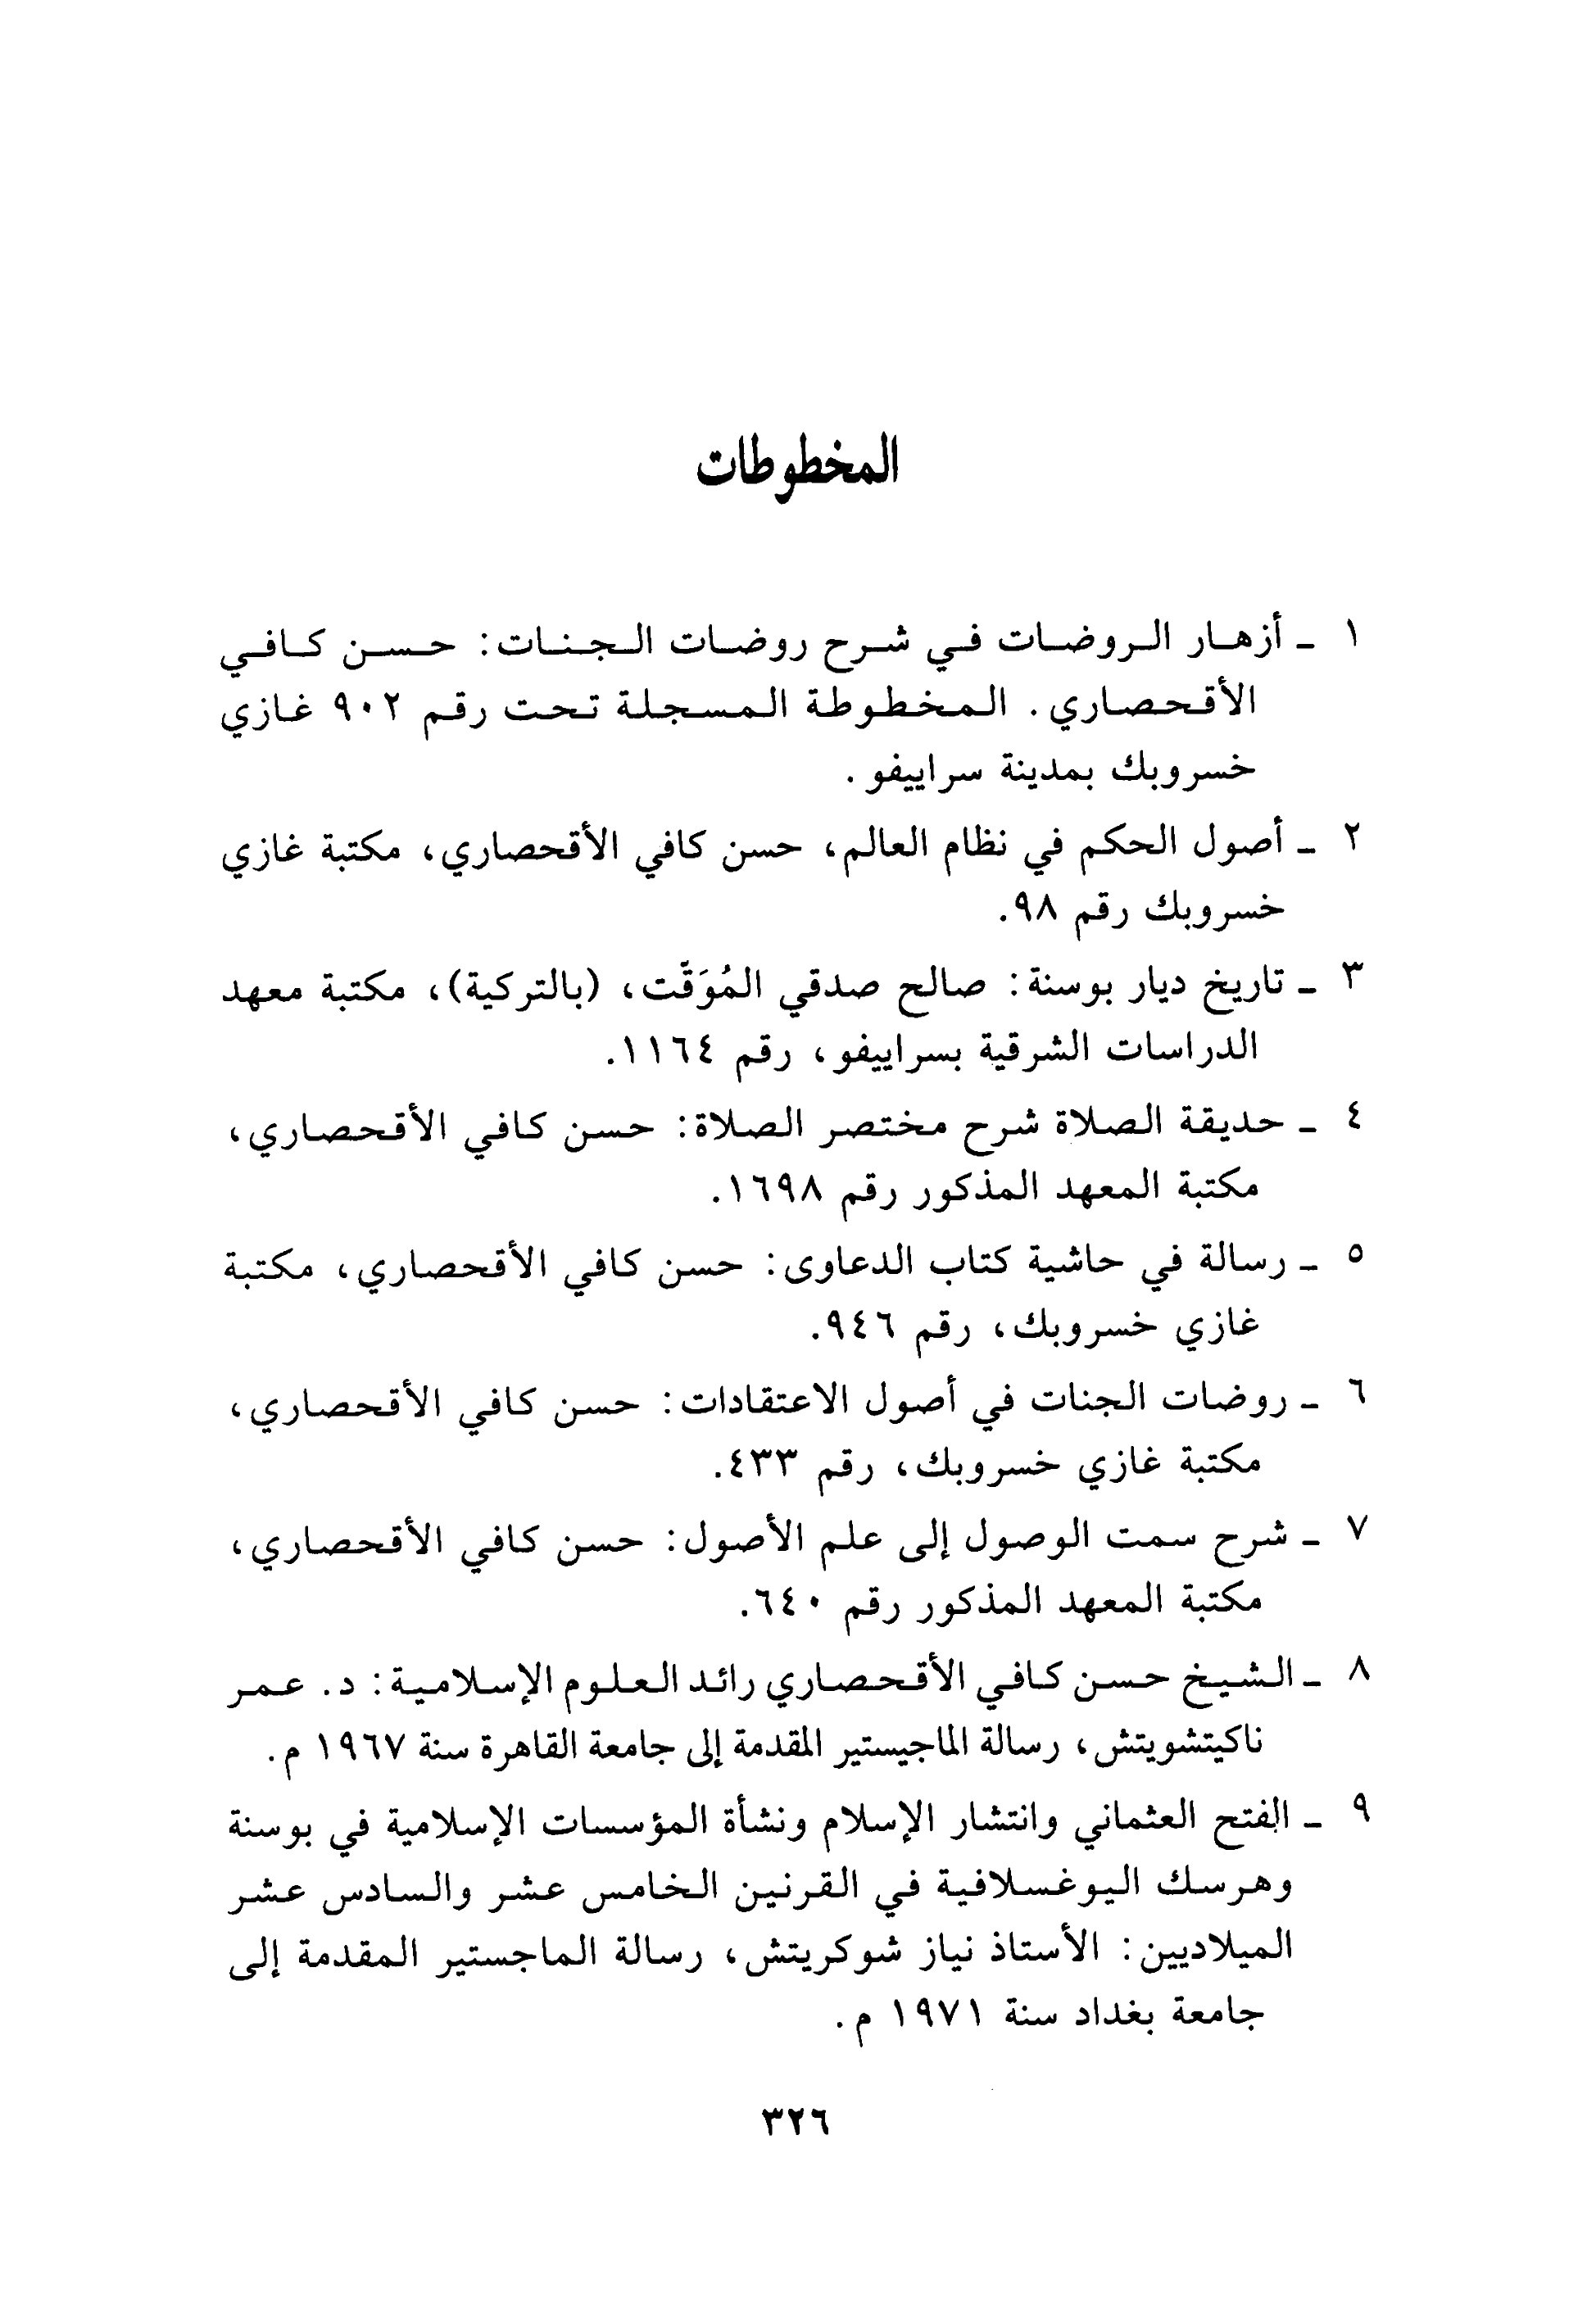 المخطوطات
١ ـ أزهار الروضات في شرح روضات الجنات: حسن كافي
الأقحصاري. المخطوطة المسجلة تحت رقم ٩٠٢ غازي
خسروبك بمدينة سراييفو.
٢ ـ أصول الحكم في نظام العالم، حسن كافي الأقحصاري، مكتبة غازي
خسروبك رقم ٩٨.
٣ ـ تاريخ ديار بوسنة: صالح صدقي المُوَقَّت، (بالتركية)، مكتبة معهد
الدراسات الشرقية بسراييفو، رقم ١١٦٤.
٤ ـ حديقة الصلاة شرح مختصر الصلاة: حسن كافي الأقحصاري،
مكتبة المعهد المذكور رقم ١٦٩٨.
٥ ـ رسالة في حاشية كتاب الدعاوى: حسن كافي الأقحصاري، مكتبة
غازي خسروبك، رقم ٩٤٦.
٦ ـ روضات الجنات في أصول الاعتقادات: حسن كافي الأقحصاري،
مكتبة غازي خسروبك، رقم ٤٣٣.
٧ ـ شرح سمت الوصول إلى علم الأصول: حسن كافي الأقحصاري،
مكتبة المعهد المذكور رقم ٦٤٠.
٨ ـ الشيخ حسن كافي الأقحصاري رائد العلوم الإسلامية: د. عمر
ناكيتشويتش، رسالة الماجيستير المقدمة إلى جامعة القاهرة سنة ١٩٦٧ م.
٩ ـ الفتح العثماني وانتشار الإسلام ونشأة المؤسسات الإسلامية في بوسنة
وهرسك اليوغسلافية في القرنين الخامس عشر والسادس عشر
الميلاديين: الأستاذ نياز شوكريتش، رسالة الماجستير المقدمة إلى
جامعة بغداد سنة ١٩٧١ م.
٣٢٦